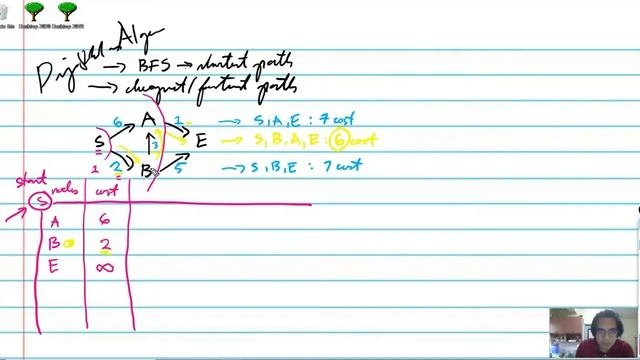 Dijkstra Algo
→ BFS → shortest paths
→ cheapest/fastest paths
6 A 1 → S, A, E : 7 cost
S 3 E → S, B, A, E : 6 cost
1 2 B 5 → S, B, E : 7 cost
start
nodes cost
S
A 6
B 2
E ∞